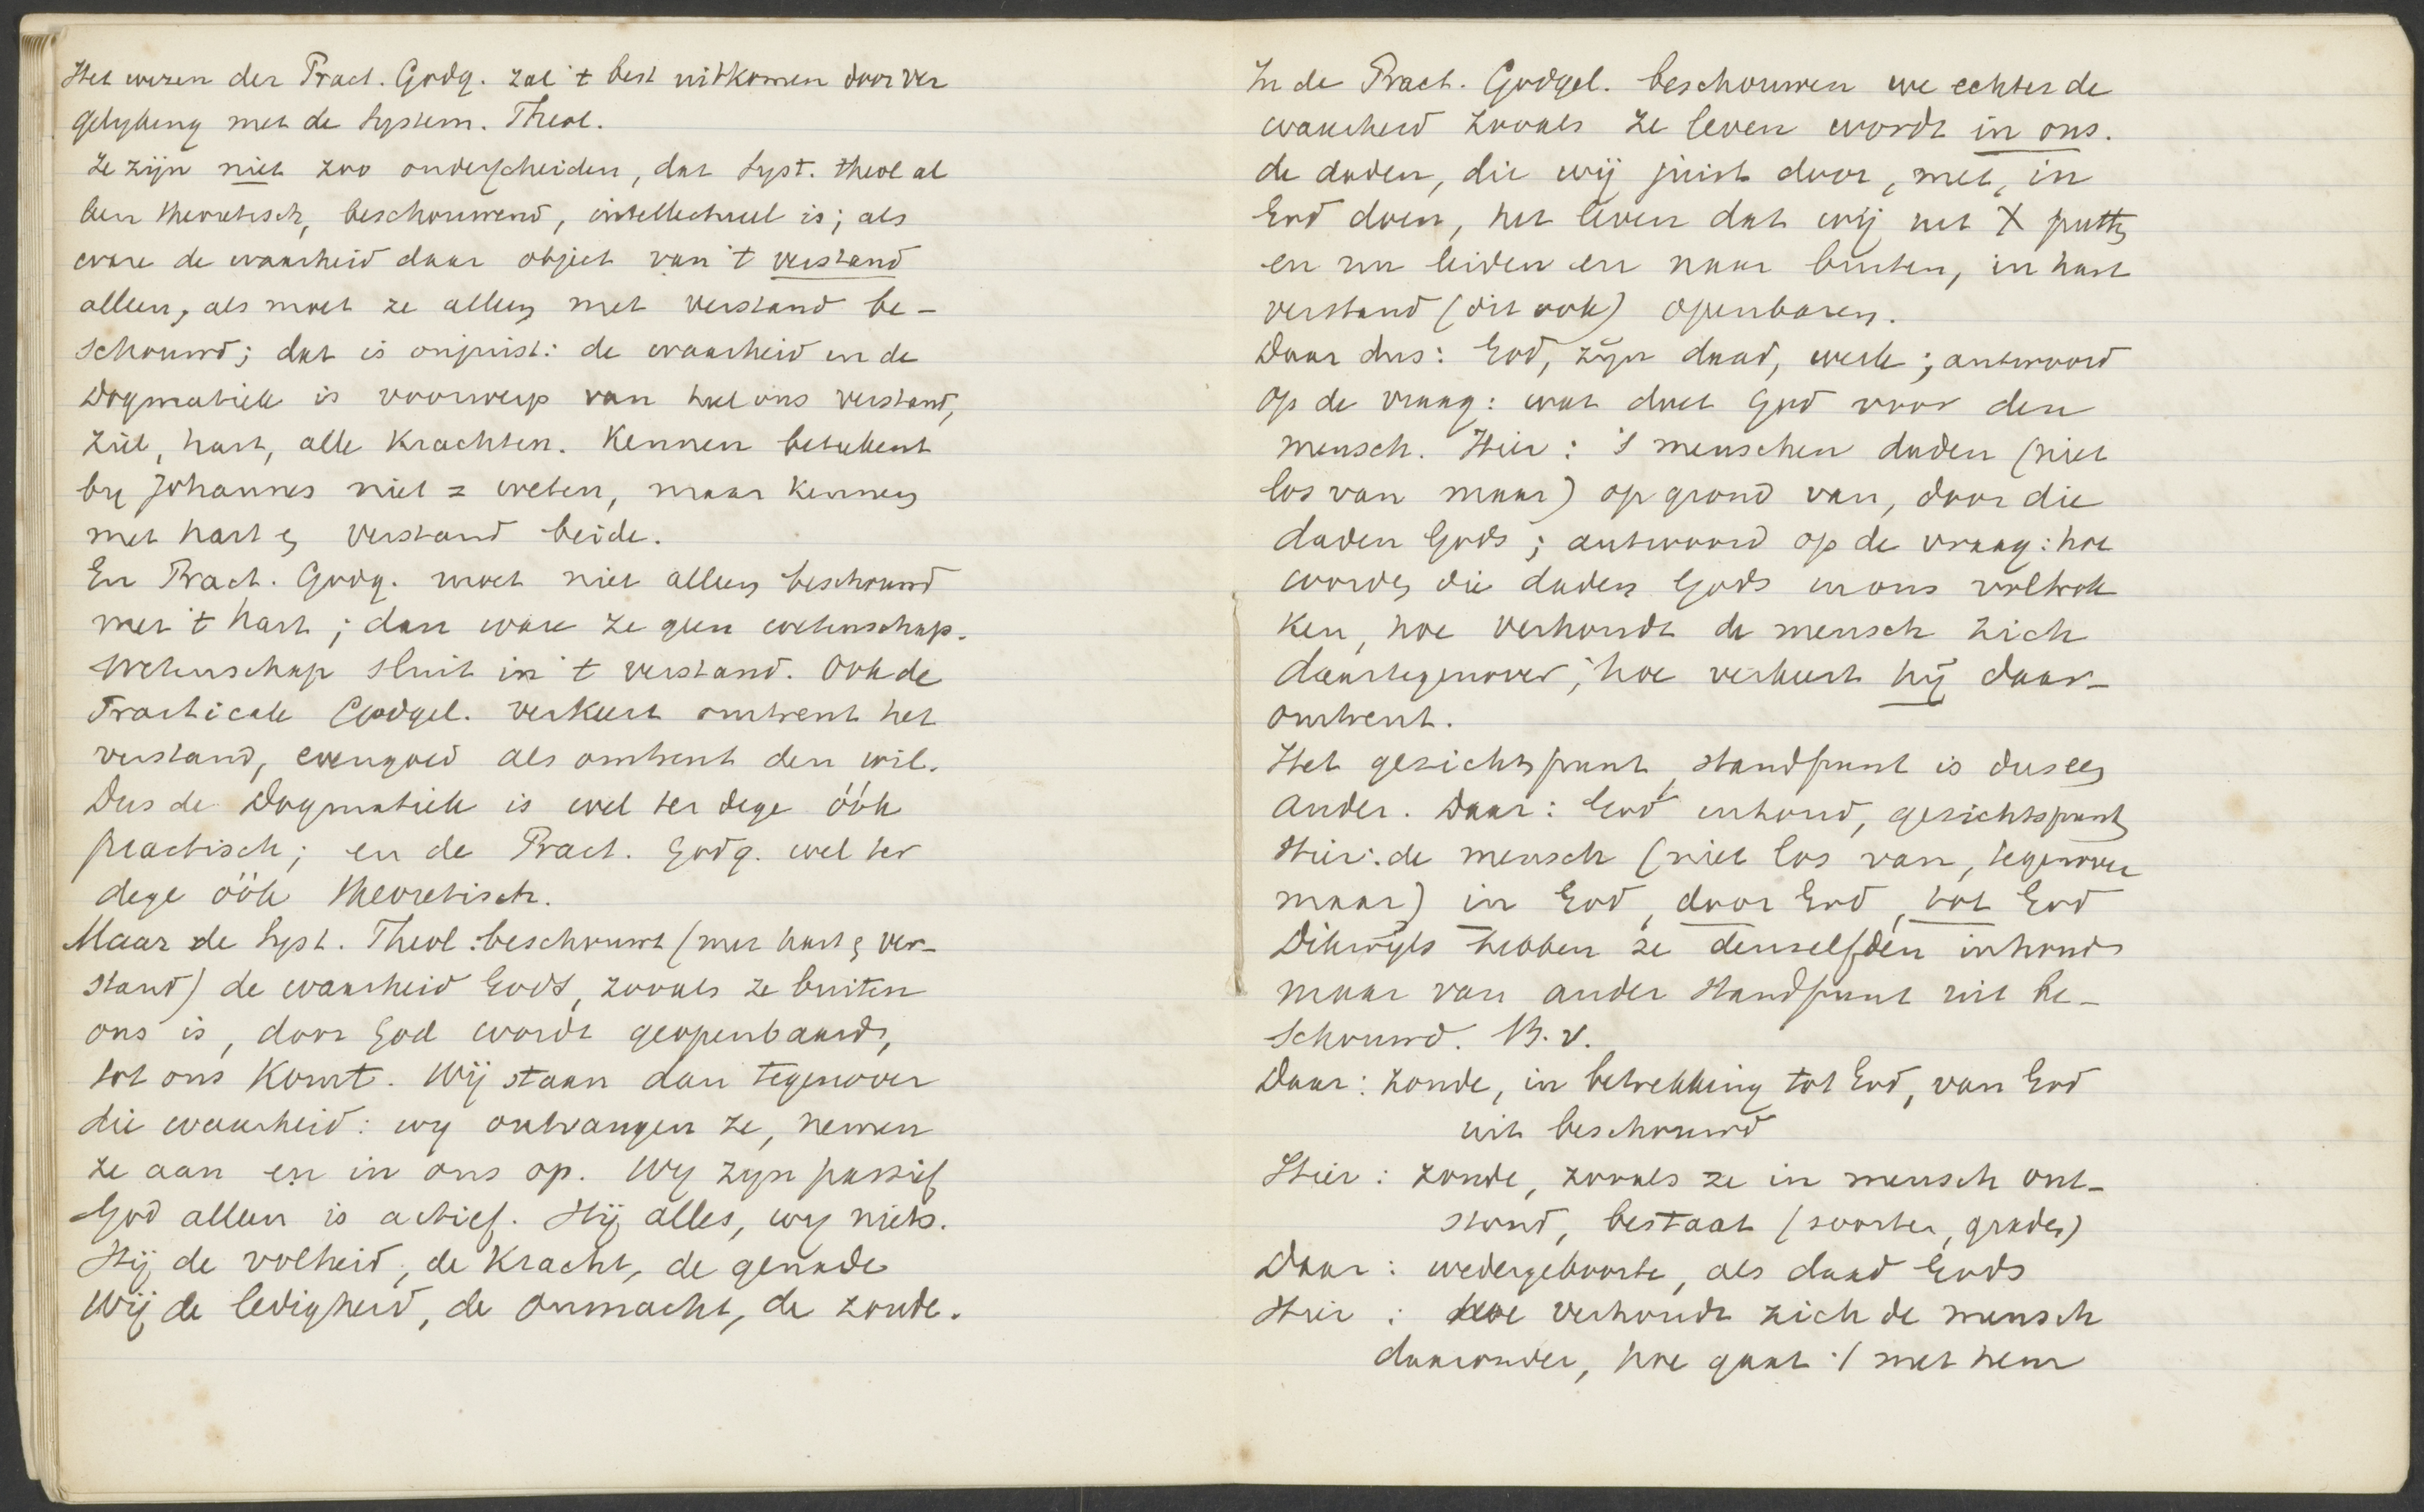 Het wezen der Pract. Godg. zal 't best uitkomen door ver
gelyking met de System. Theol.
Ze zijn niet zoo onderscheiden, dat Syst. theol al
leen theoretisch, beschouwend, intellectueel is; als
ware de waarheid daar object van 't verstand
alleen, als moet ze alleen met verstand be-
schouwd; dat is onjuist: de waarheid in de
Dogmatiek is voorwerp van heel ons verstand,
ziel, hart, alle krachten. Kennen beteekent
by Johannes niet = weten, maar kennen
met hart en verstand beide.
En Pract. Godg. moet niet alleen beschouwd
met 't hart; dan ware ze geen wetenschap.
Wetenschap sluit in 't verstand. Ook de
Practicale Godgel. verkeert omtrent het
verstand, evengoed als omtrent den wil.
Dus de Dogmatiek is wel ter dege óók
practisch; en de Pract. Godg. wel ter
dege óók theoretisch.
Maar de Syst. Theol. beschouwt (met hart en ver-
stand) de waarheid Gods, zooals ze buiten
ons is, door God wordt geopenbaard,
tot ons komt. Wij staan dan tegenover
die waarheid: wy ontvangen ze, nemen
ze aan en in ons op. Wy zyn passief
God alleen is actief. Hij alles, wy niets.
Hij de volheid, de kracht, de genade
Wij de ledigheid, de onmacht, de zonde.
In de Pract. Godgel. beschouwen we echter de
waarheid zooals ze leven wordt in ons.
de daden, die wij juist door, met, in
God doen, het leven dat wij uit X putten
en nu leiden en naar buiten, in hart
verstand (dit ook) openbaren.
Daar dus: God, zijn daad, werk; antwoord
op de vraag: wat doet God voor den
mensch. Hier: 's menschen daden (niet
los van maar) op grond van, door die
daden Gods; antwoord op de vraag: hoe
worden die daden Gods in ons voltrok
ken, hoe verhoudt de mensch zich
daartegenover, hoe verkeert hij daar-
omtrent.
Het gezichtspunt, standpunt is dus een
ander. Daar: God inhoud, gezichtspunt
Hier: de mensch (niet los van, tegenover
maar) in God, door God, tot God
Dikwijls hebben ze denzelfden inhoud
maar van ander standpunt uit be-
schouwd. B.v.
Daar: zonde, in betrekking tot God, van God
uit beschouwd
Hier: zonde, zooals ze in mensch ont-
stond, bestaat (soorten, graden)
Daar: wedergeboorte, als daad Gods
Hier: hoe verhoudt zich de mensch
daaronder, hoe gaat 't met hem